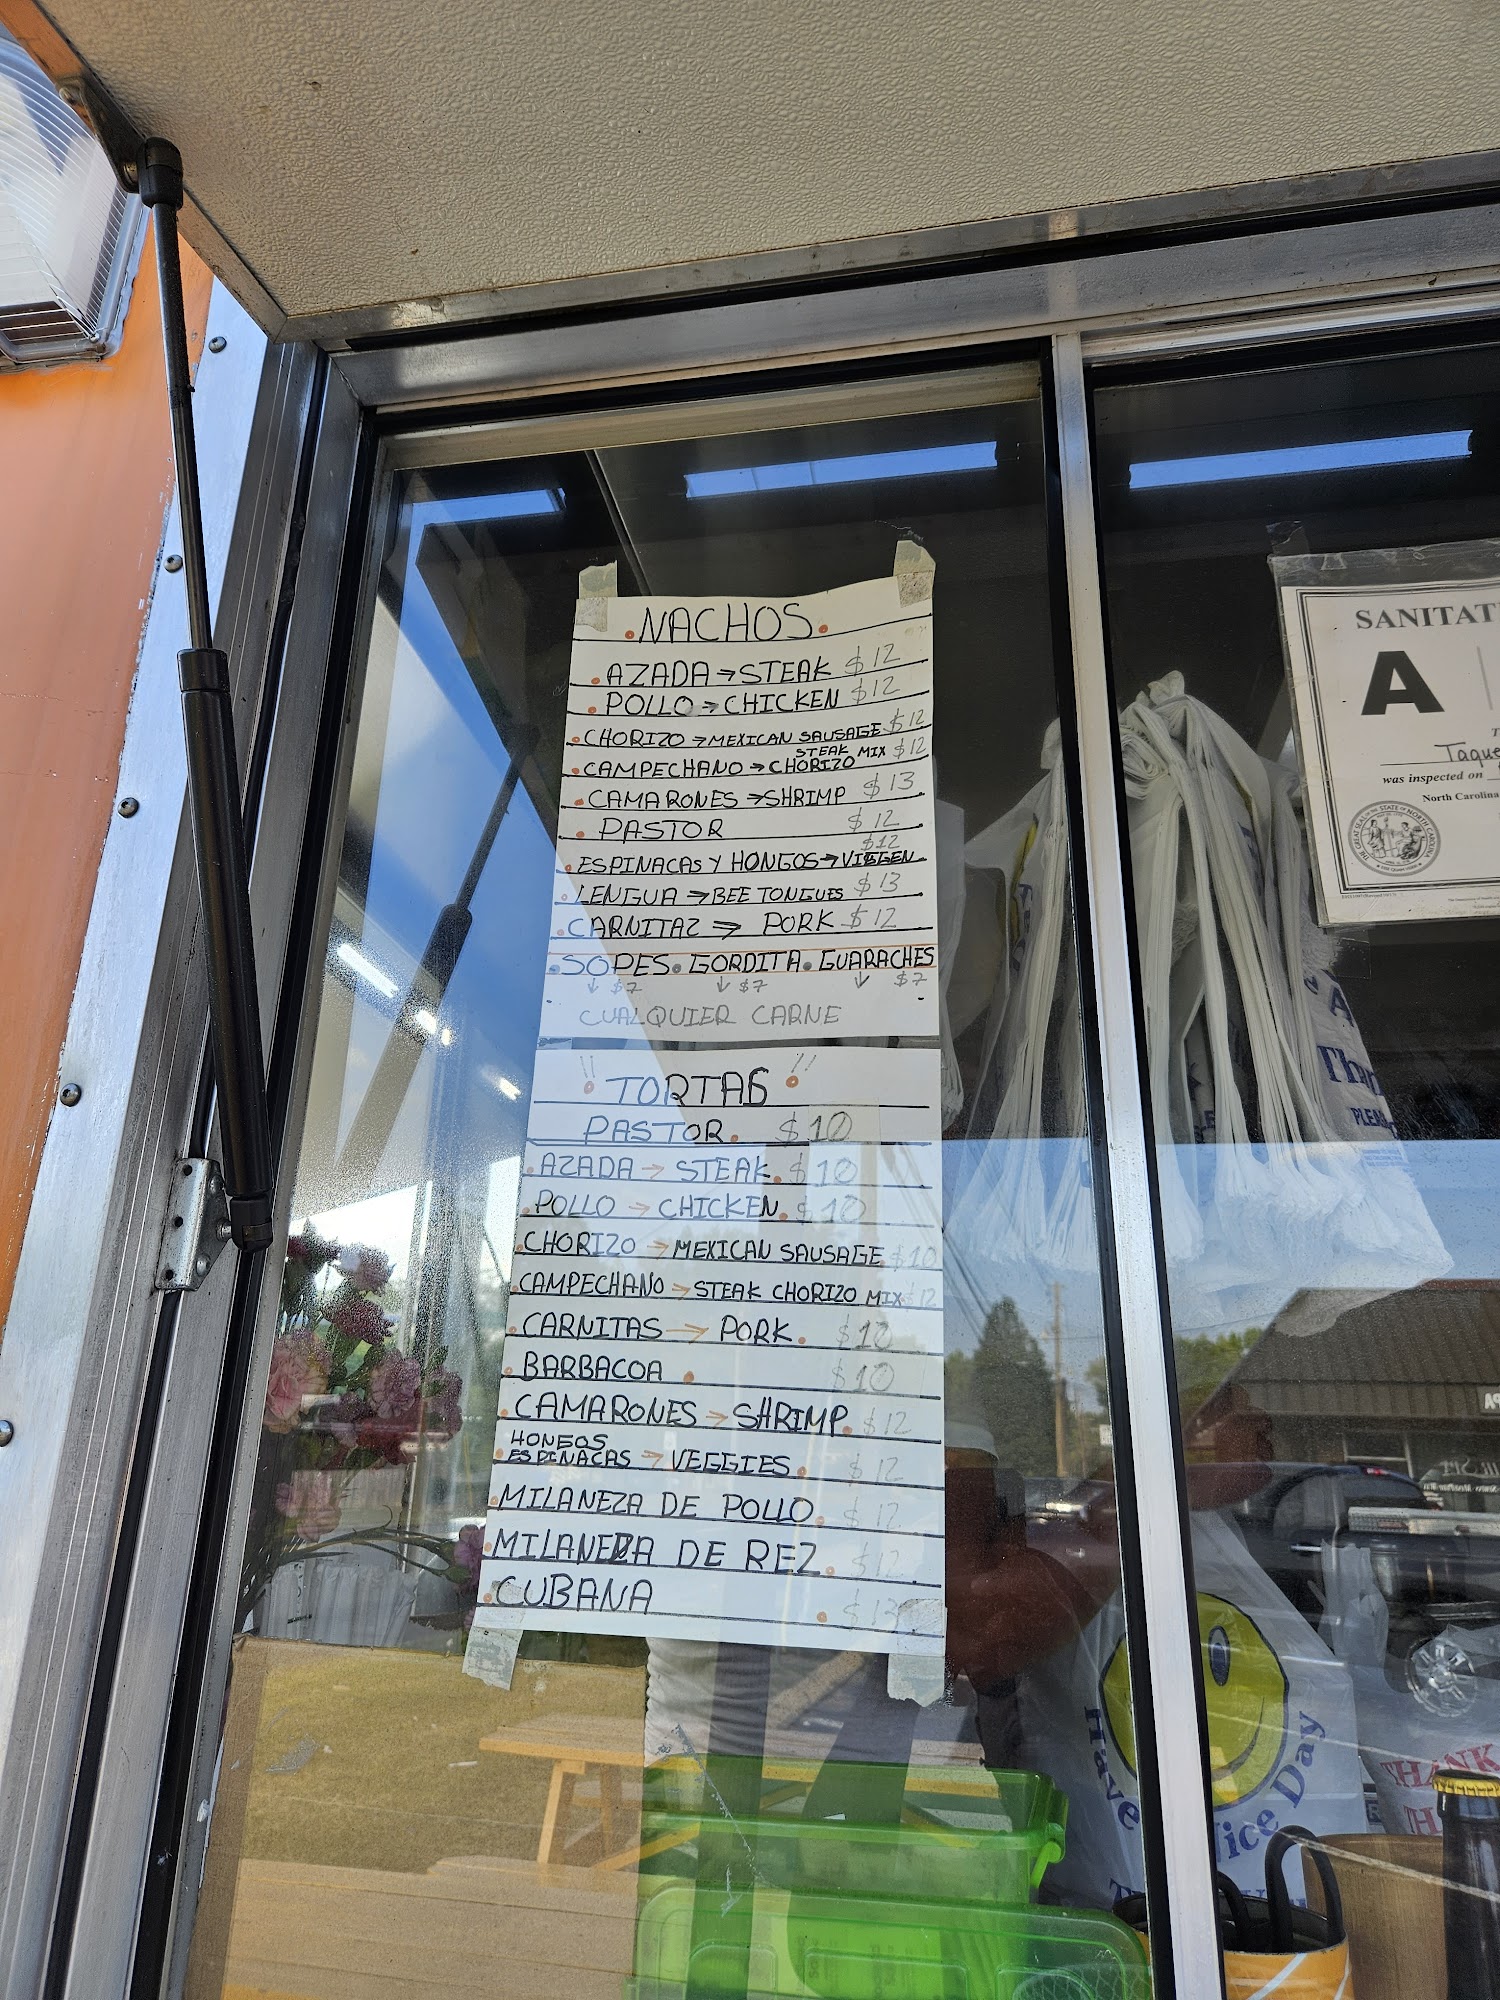 .NACHOS.
.AZADA→STEAK $12
.POLLO→CHICKEN $12
.CHORIZO→MEXICAN SAUSAGE $12
.CAMPECHANO→CHORIZO STEAK MIX $12
.CAMARONES→SHRIMP $13
.PASTOR $12
.ESPINACAS Y HONGOS→VIGGEN $12
.LENGUA→BEE TONGUES $13
.CARNITAZ→ PORK $12
.SOPES.GORDITA.GUARACHES
↓ $7 ↓ $7 ↓ $7
CUALQUIER CARNE
!! TORTAS !!
PASTOR. $10
.AZADA→STEAK. $10
.POLLO→CHICKEN. $10
.CHORIZO→MEXICAN SAUSAGE $10
.CAMPECHANO→STEAK CHORIZO MIX $12
.CARNITAS→PORK.
.BARBACOA. $10
.CAMARONES→SHRIMP. $12
HONGOS
.ESPINACAS→VEGGIES. $12
.MILANEZA DE POLLO. $12
.MILANEZA DE REZ. $12
.CUBANA . $13
SANITAT
A
Taque
was inspected on
North Carolina
THE GREAT SEAL OF THE STATE OF NORTH CAROLINA
Than
PLEAS
Have
Nice Day
THANK